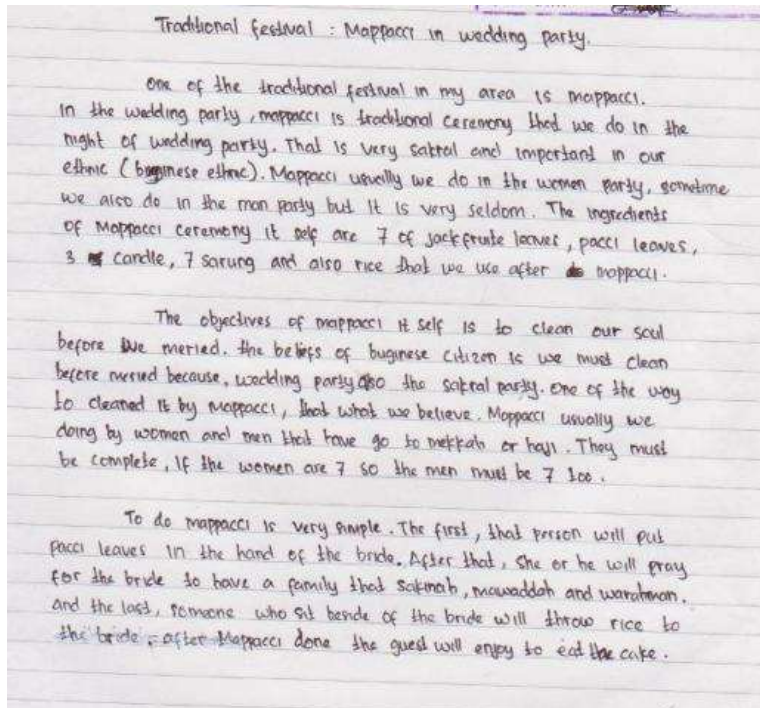 Traditional festival : Mappacci in wedding party.
One of the traditional festival in my area is mappacci.
In the wedding party , mappacci is traditional ceremony that we do in the
night of wedding party. That is very sakral and important in our
ethnic ( buginese ethnic). Mappacci usually we do in the women party, sometime
we also do in the man party but it is very seldom. The ingredients
of Mappacci ceremony it self are 7 of jackfruite leaves , pacci leaves,
3 candle, 7 sarung and also rice that we use after mappacci.
The objectives of mappacci it self is to clean our soul
before we meried. the beliefs of buginese citizen is we must clean
before meried because, wedding party also the sakral party. One of the way
to cleaned it by mappacci, that what we believe. Mappacci usually we
doing by women and men that have go to mekkah or haji. They must
be complete, If the women are 7 so the men must be 7 too.
To do mappacci is very simple. The first, that person will put
pacci leaves in the hand of the bride. After that, she or he will pray
for the bride to have a family that sakinah, mawaddah and warahmah.
and the last, someone who sit beside of the bride will throw rice to
the bride, after Mappacci done the guest will enjoy to eat the cake.